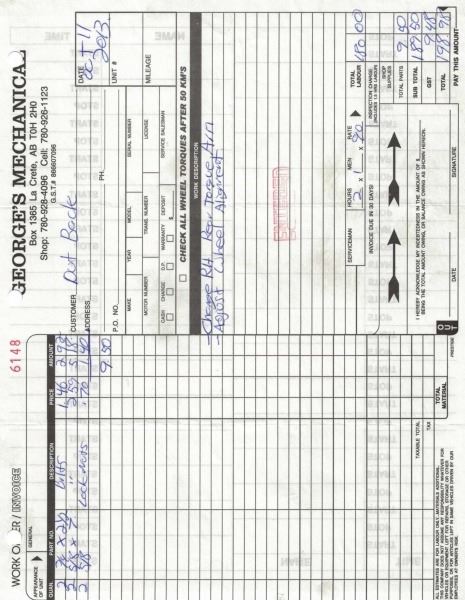 WORK O ER / INVOICE
6148
APPEARANCE OF UNIT
GENERAL
QUAN. PART NO. DESCRIPTION PRICE AMOUNT
2 Bolts 1.46 2.92
2 5/8 x 7 " 2.59 5.18
2 5/8 Lock Nuts .70 1.40
9.50
TAXABLE TOTAL
TAX
TOTAL MATERIAL
ALL ESTIMATES ARE FOR LABOUR ONLY, MATERIALS ADDITIONAL.
PRESTIGE
GEORGE'S MECHANICAL
Box 1365 La Crete, AB T0H 2H0
Shop: 780-928-4096 Cell: 780-926-1123
G.S.T.# 866607096
CUSTOMER
DATE Oct 11 2013
ADDRESS
PH.
UNIT #
P.O. NO.
MAKE YEAR MODEL SERIAL NUMBER MILEAGE
MOTOR NUMBER TRANS. NUMBER LICENSE
CASH CHARGE O.P. WARRANTY DEPOSIT $ SERVICE SALESMAN
CHECK ALL WHEEL TORQUES AFTER 50 KM'S
WORK DESCRIPTION
- Change RH Rear Torque Arm
- Adjust Wheel Alignment
ENTERED
SERVICEMAN
HOURS MEN RATE
2 x 1 x 90
TOTAL LABOUR 180.00
INVOICE DUE IN 30 DAYS!
INSPECTION CHARGE
SHOP SUPPLIES
TOTAL PARTS 9.50
SUB TOTAL 189.50
GST 9.48
TOTAL 198.98
I HEREBY ACKNOWLEDGE MY INDEBTEDNESS IN THE AMOUNT OF $
BEING THE TOTAL AMOUNT OWING, OR BALANCE OWING AS SHOWN HEREON.
DATE SIGNATURE
PAY THIS AMOUNT
OUT